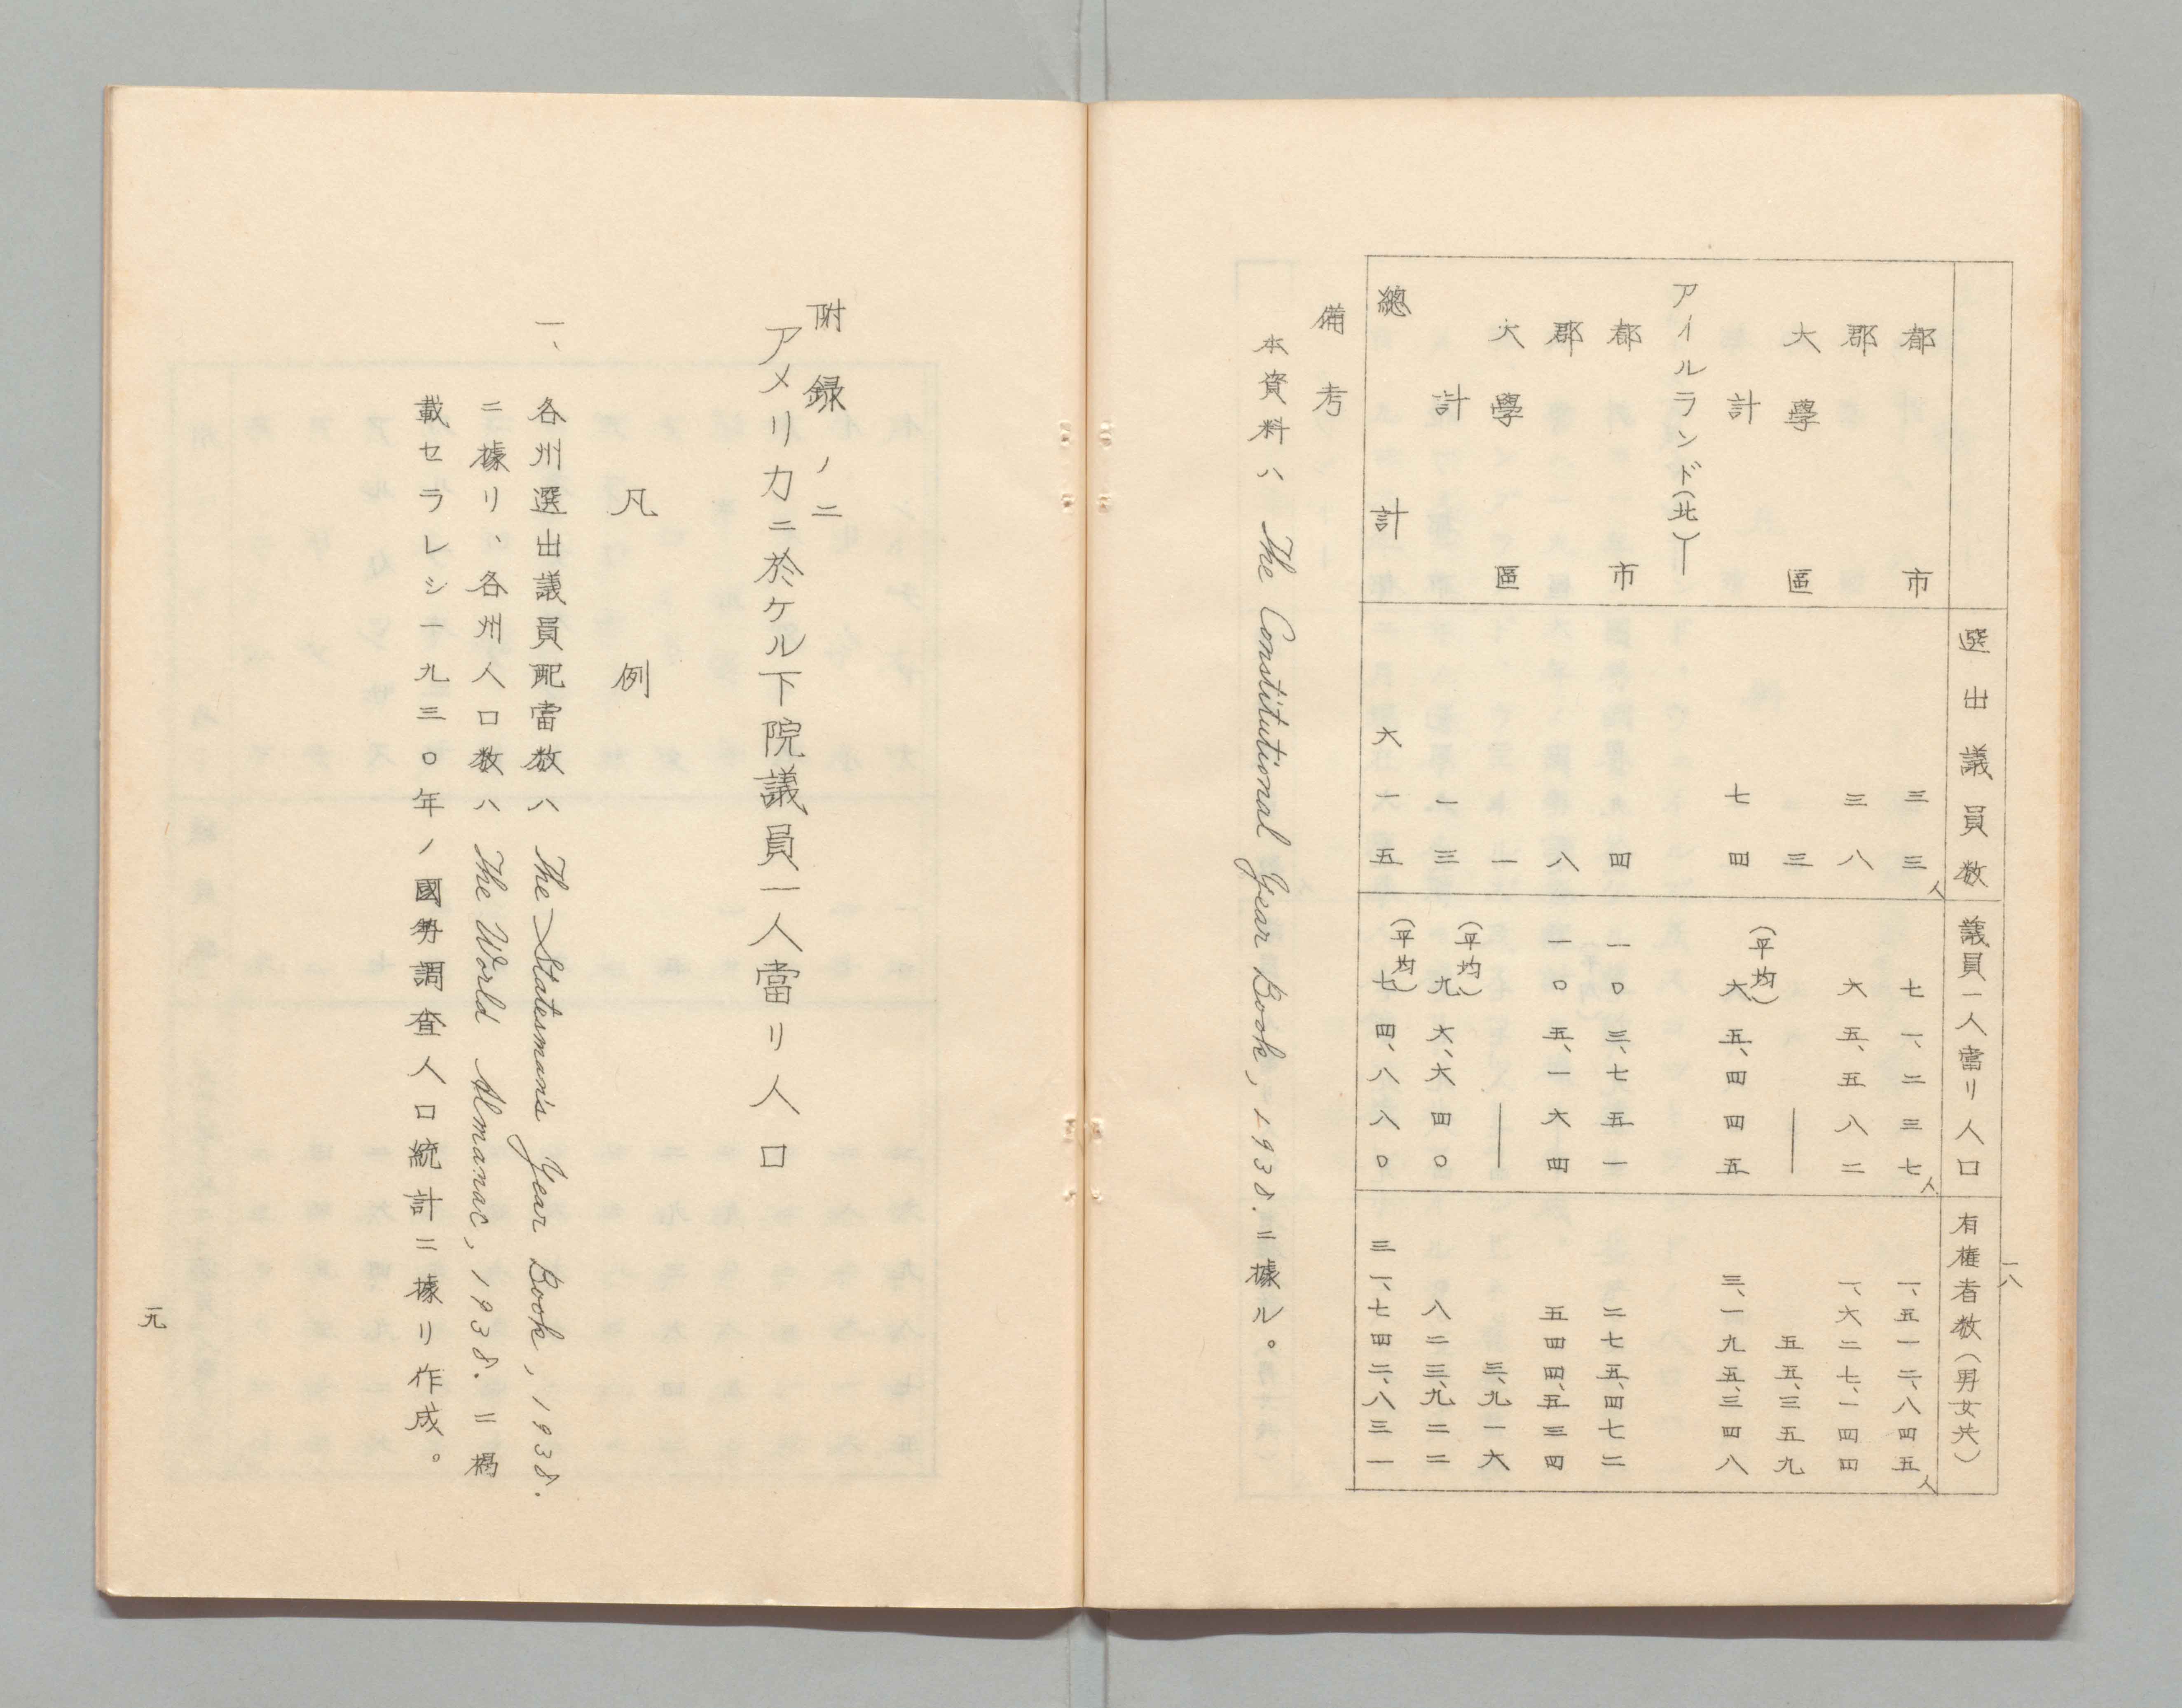 一八
選出議員数 議員一人當リ人口 有権者数(男女共)
都市 三三人 七一、二三七人 一、五一二、八四五人
郡 三八 六五、五八二 一、六二七、一四四
大學區 三 — 五五、三五九
計 七四 (平均)六五、四四五 三、一九五、三四八
アイルランド(北)—
都市 四 一〇三、七五一 二七五、四七二
郡 八 一〇五、一六四 五四四、五三四
大學區 一 — 三、九一六
計 一三 (平均)九六、六四〇 八二三、九二二
總計 六一五 (平均)七四、八八〇 三一、七四二、八三一
備考
本資料ハ The Constitutional Year Book, 1938. ニ據ル。
附録ノ二
アメリカニ於ケル下院議員一人當リ人口
凡例
一、各州選出議員配當数ハ The Statesman's Year Book, 1938.
ニ據リ、各州人口数ハ The World Almanac, 1938. ニ掲
載セラレシ一九三〇年ノ國勢調査人口統計ニ據リ作成。
一九